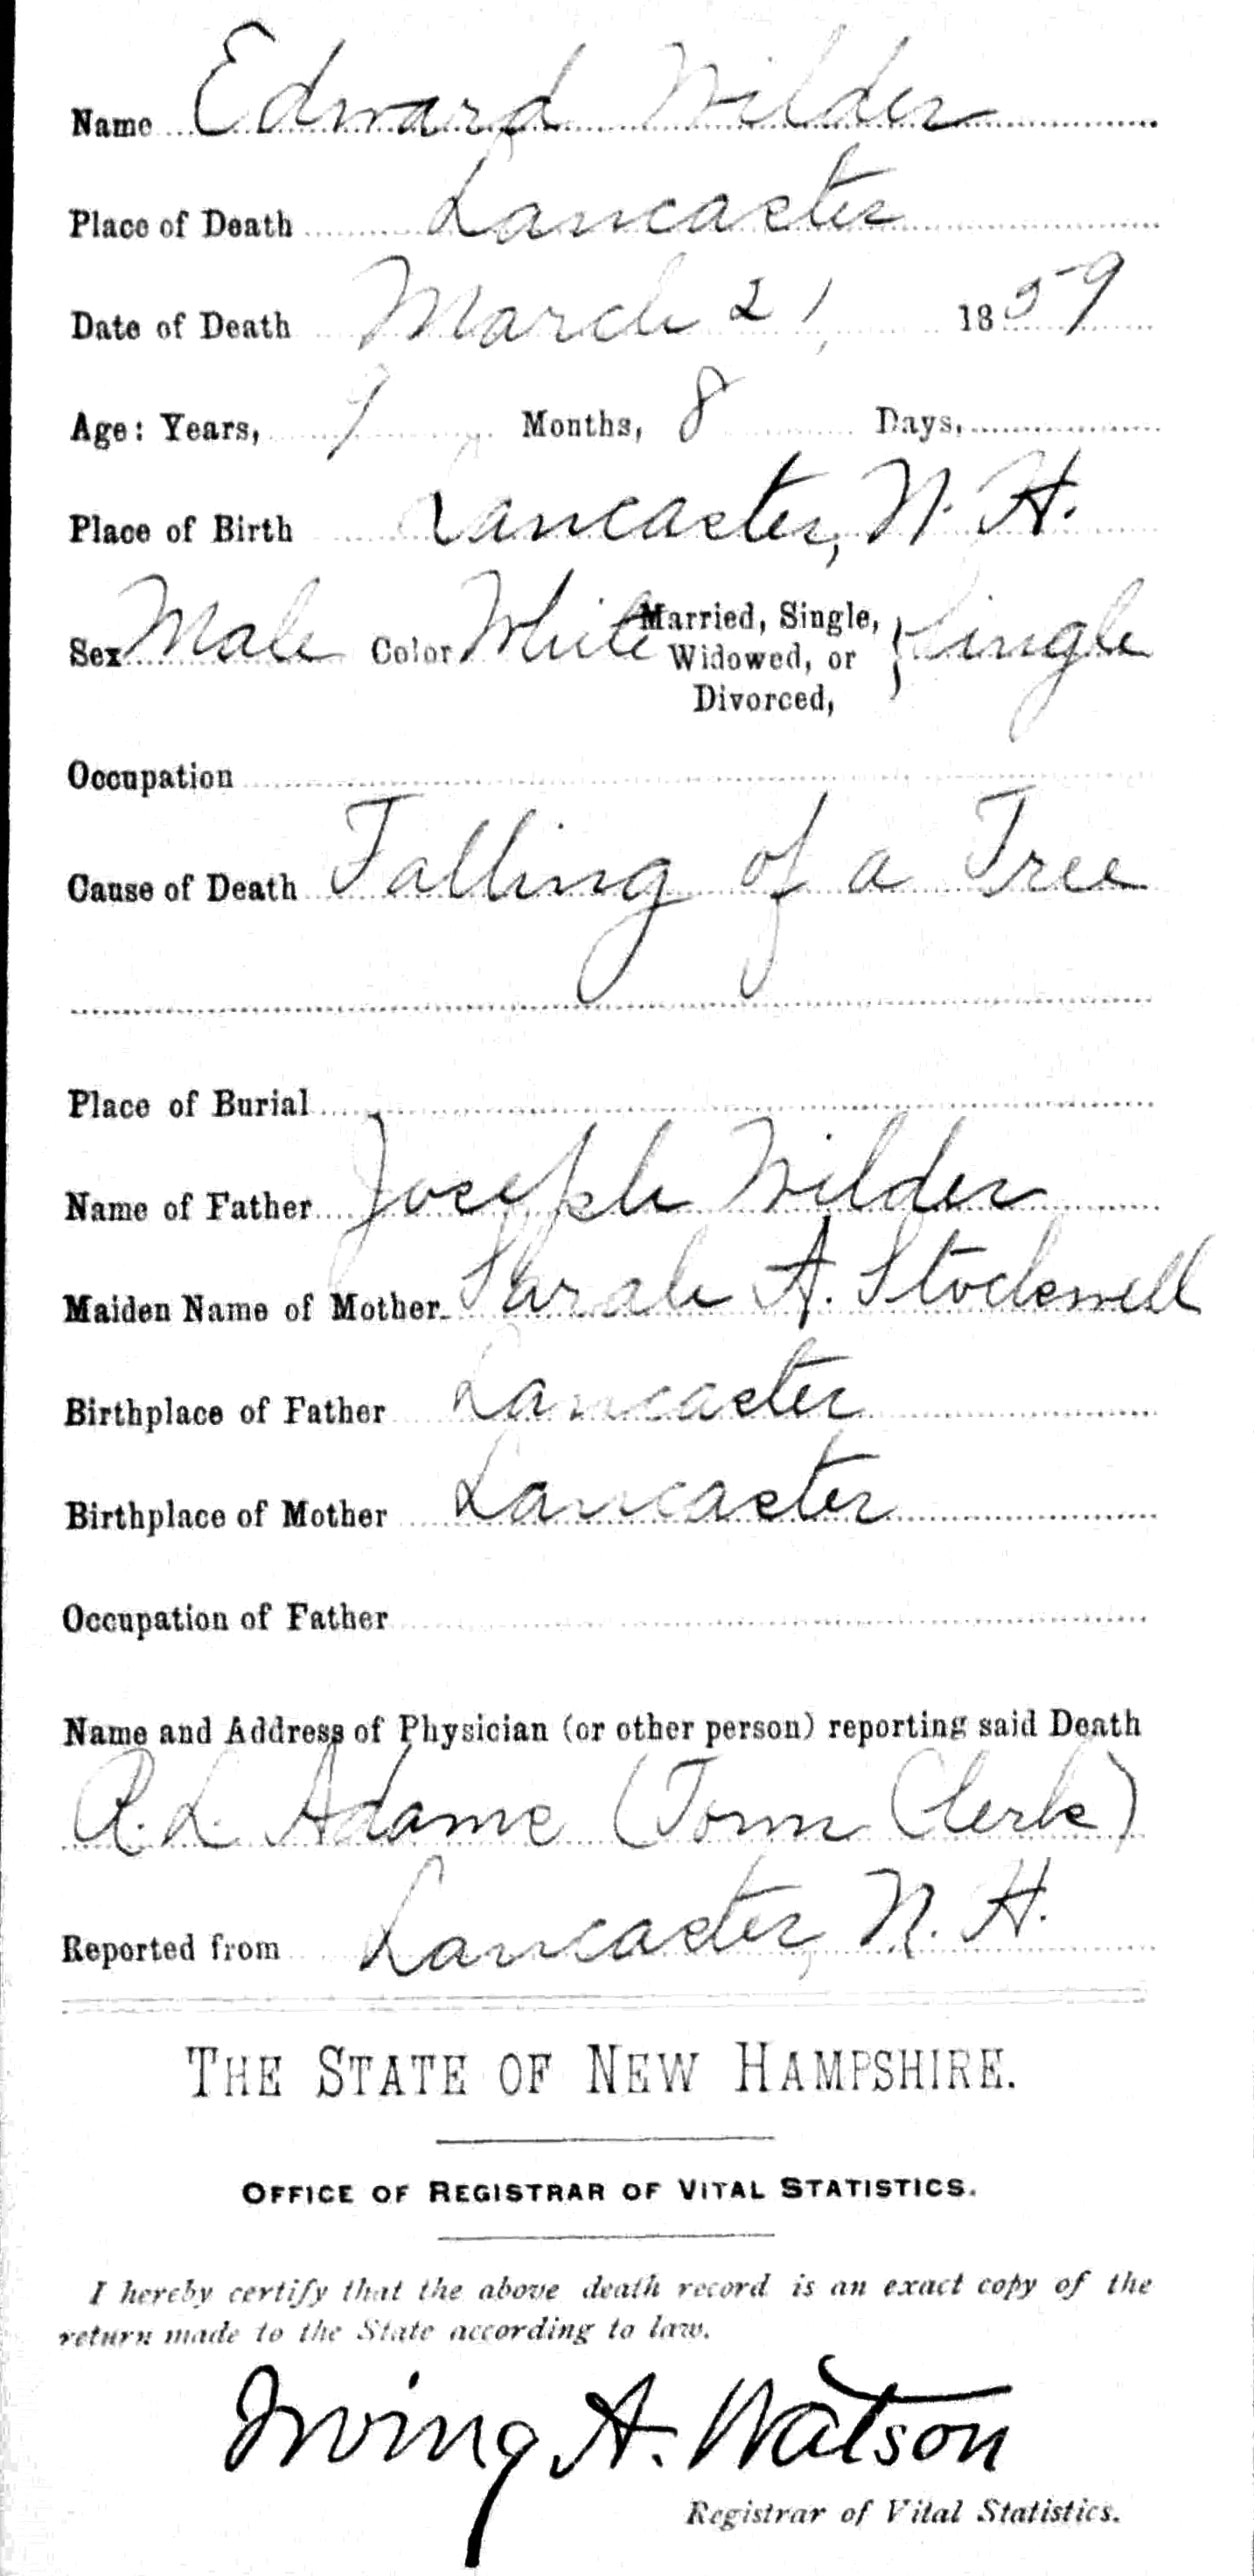 Name Edward Wilder
Place of Death Lancaster
Date of Death March 21, 1859
Age: Years, 9 Months, 8 Days,
Place of Birth Lancaster, N. H.
Sex Male Color White Married, Single, Widowed, or Divorced, } Single
Occupation
Cause of Death Falling of a Tree
Place of Burial
Name of Father Joseph Wilder
Maiden Name of Mother Sarah A. Stockwell
Birthplace of Father Lancaster
Birthplace of Mother Lancaster
Occupation of Father
Name and Address of Physician (or other person) reporting said Death
R. L. Adams (Town Clerk)
Reported from Lancaster, N. H.
THE STATE OF NEW HAMPSHIRE.
OFFICE OF REGISTRAR OF VITAL STATISTICS.
I hereby certify that the above death record is an exact copy of the
return made to the State according to law.
Irving A. Watson
Registrar of Vital Statistics.